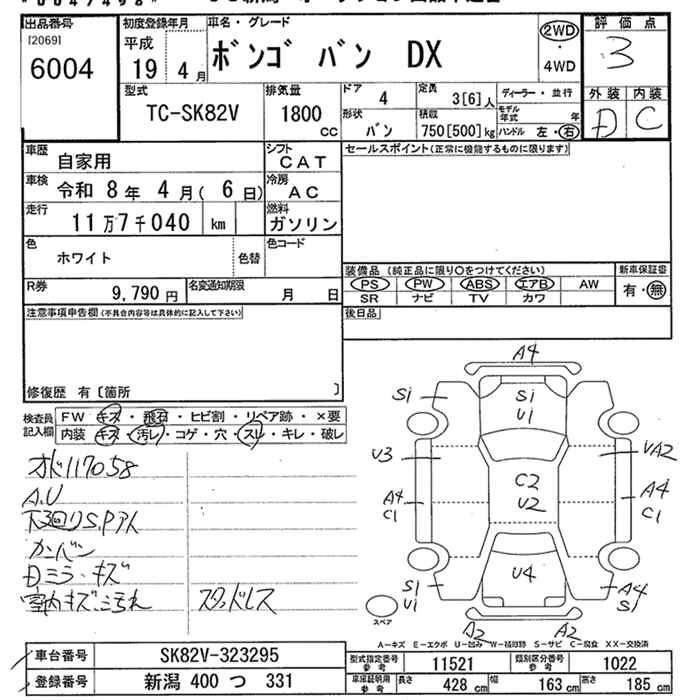 出品番号
[2069]
6004
初度登録年月
平成
19 4 月
車名・グレード
ボンゴ バン DX
2WD
・
4WD
評価点
3
外装 内装
D C
型式
TC-SK82V
排気量
1800
cc
ドア 4
形状 バン
定員 3[6]人
積載 750[500]kg
ディーラー・並行
モデル年式 年
ハンドル 左・右
車歴
自家用
シフト
CAT
セールスポイント(正常に機能するものに限ります)
車検
令和 8 年 4 月( 6 日)
冷房
AC
走行
11 万 7 千 040 km
燃料
ガソリン
色
ホワイト
色替
色コード
R券
9,790 円
名変通知期限
月 日
装備品 (純正品に限り○をつけてください)
PS PW ABS エアB AW
SR ナビ TV カワ
新車保証書
有・無
注意事項申告欄(不具合内容等は具体的に記入して下さい)
後日品
修復歴 有〔箇所 〕
検査員
記入欄
FW キズ・飛石・ヒビ割・リペア跡・×要
内装 キズ・汚レ・コゲ・穴・スレ・キレ・破レ
オド117058
A.U
下回りS.Pアト
カンバン
Dミラーキズ
室内キズ汚れ
スタッドレス
A4
S1
S1
U1
U3
UA2
C2
U2
A4
C1
A4
C1
U4
S1
U1
A4
S1
A2
A2
スペア
A-キズ E-エクボ U-凹み W-補修跡 S-サビ C-腐食 XX-交換済
車台番号
SK82V-323295
型式指定番号
参考
11521
類別区分番号
参考
1022
登録番号
新潟 400 つ 331
車庫証明用
参考
長さ 428 cm
幅 163 cm
高さ 185 cm